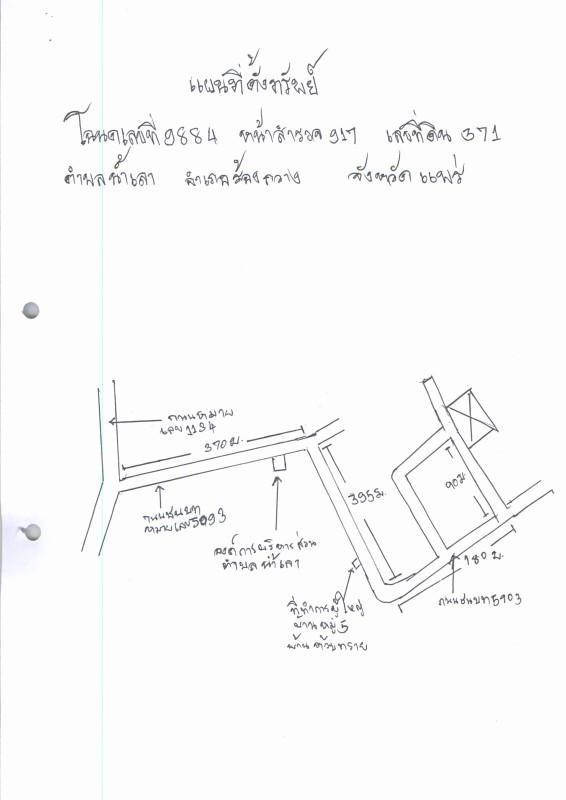 แผนที่ตั้งทรัพย์
โฉนดเลขที่ 9884 หน้าสำรวจ 917 เลขที่ดิน 371
ตำบลน้ำเลา อำเภอร้องกวาง จังหวัด แพร่
ถนนหมาย
เลข 1134
370 ม.
ถนนชนบท
หมายเลข 5093
องค์การบริหารส่วน
ตำบลน้ำเลา
395 ม.
90 ม.
180 ม.
ถนนชนบท 5903
ที่ทำการผู้ใหญ่
บ้าน หมู่ 5
บ้าน ห้วยทราย